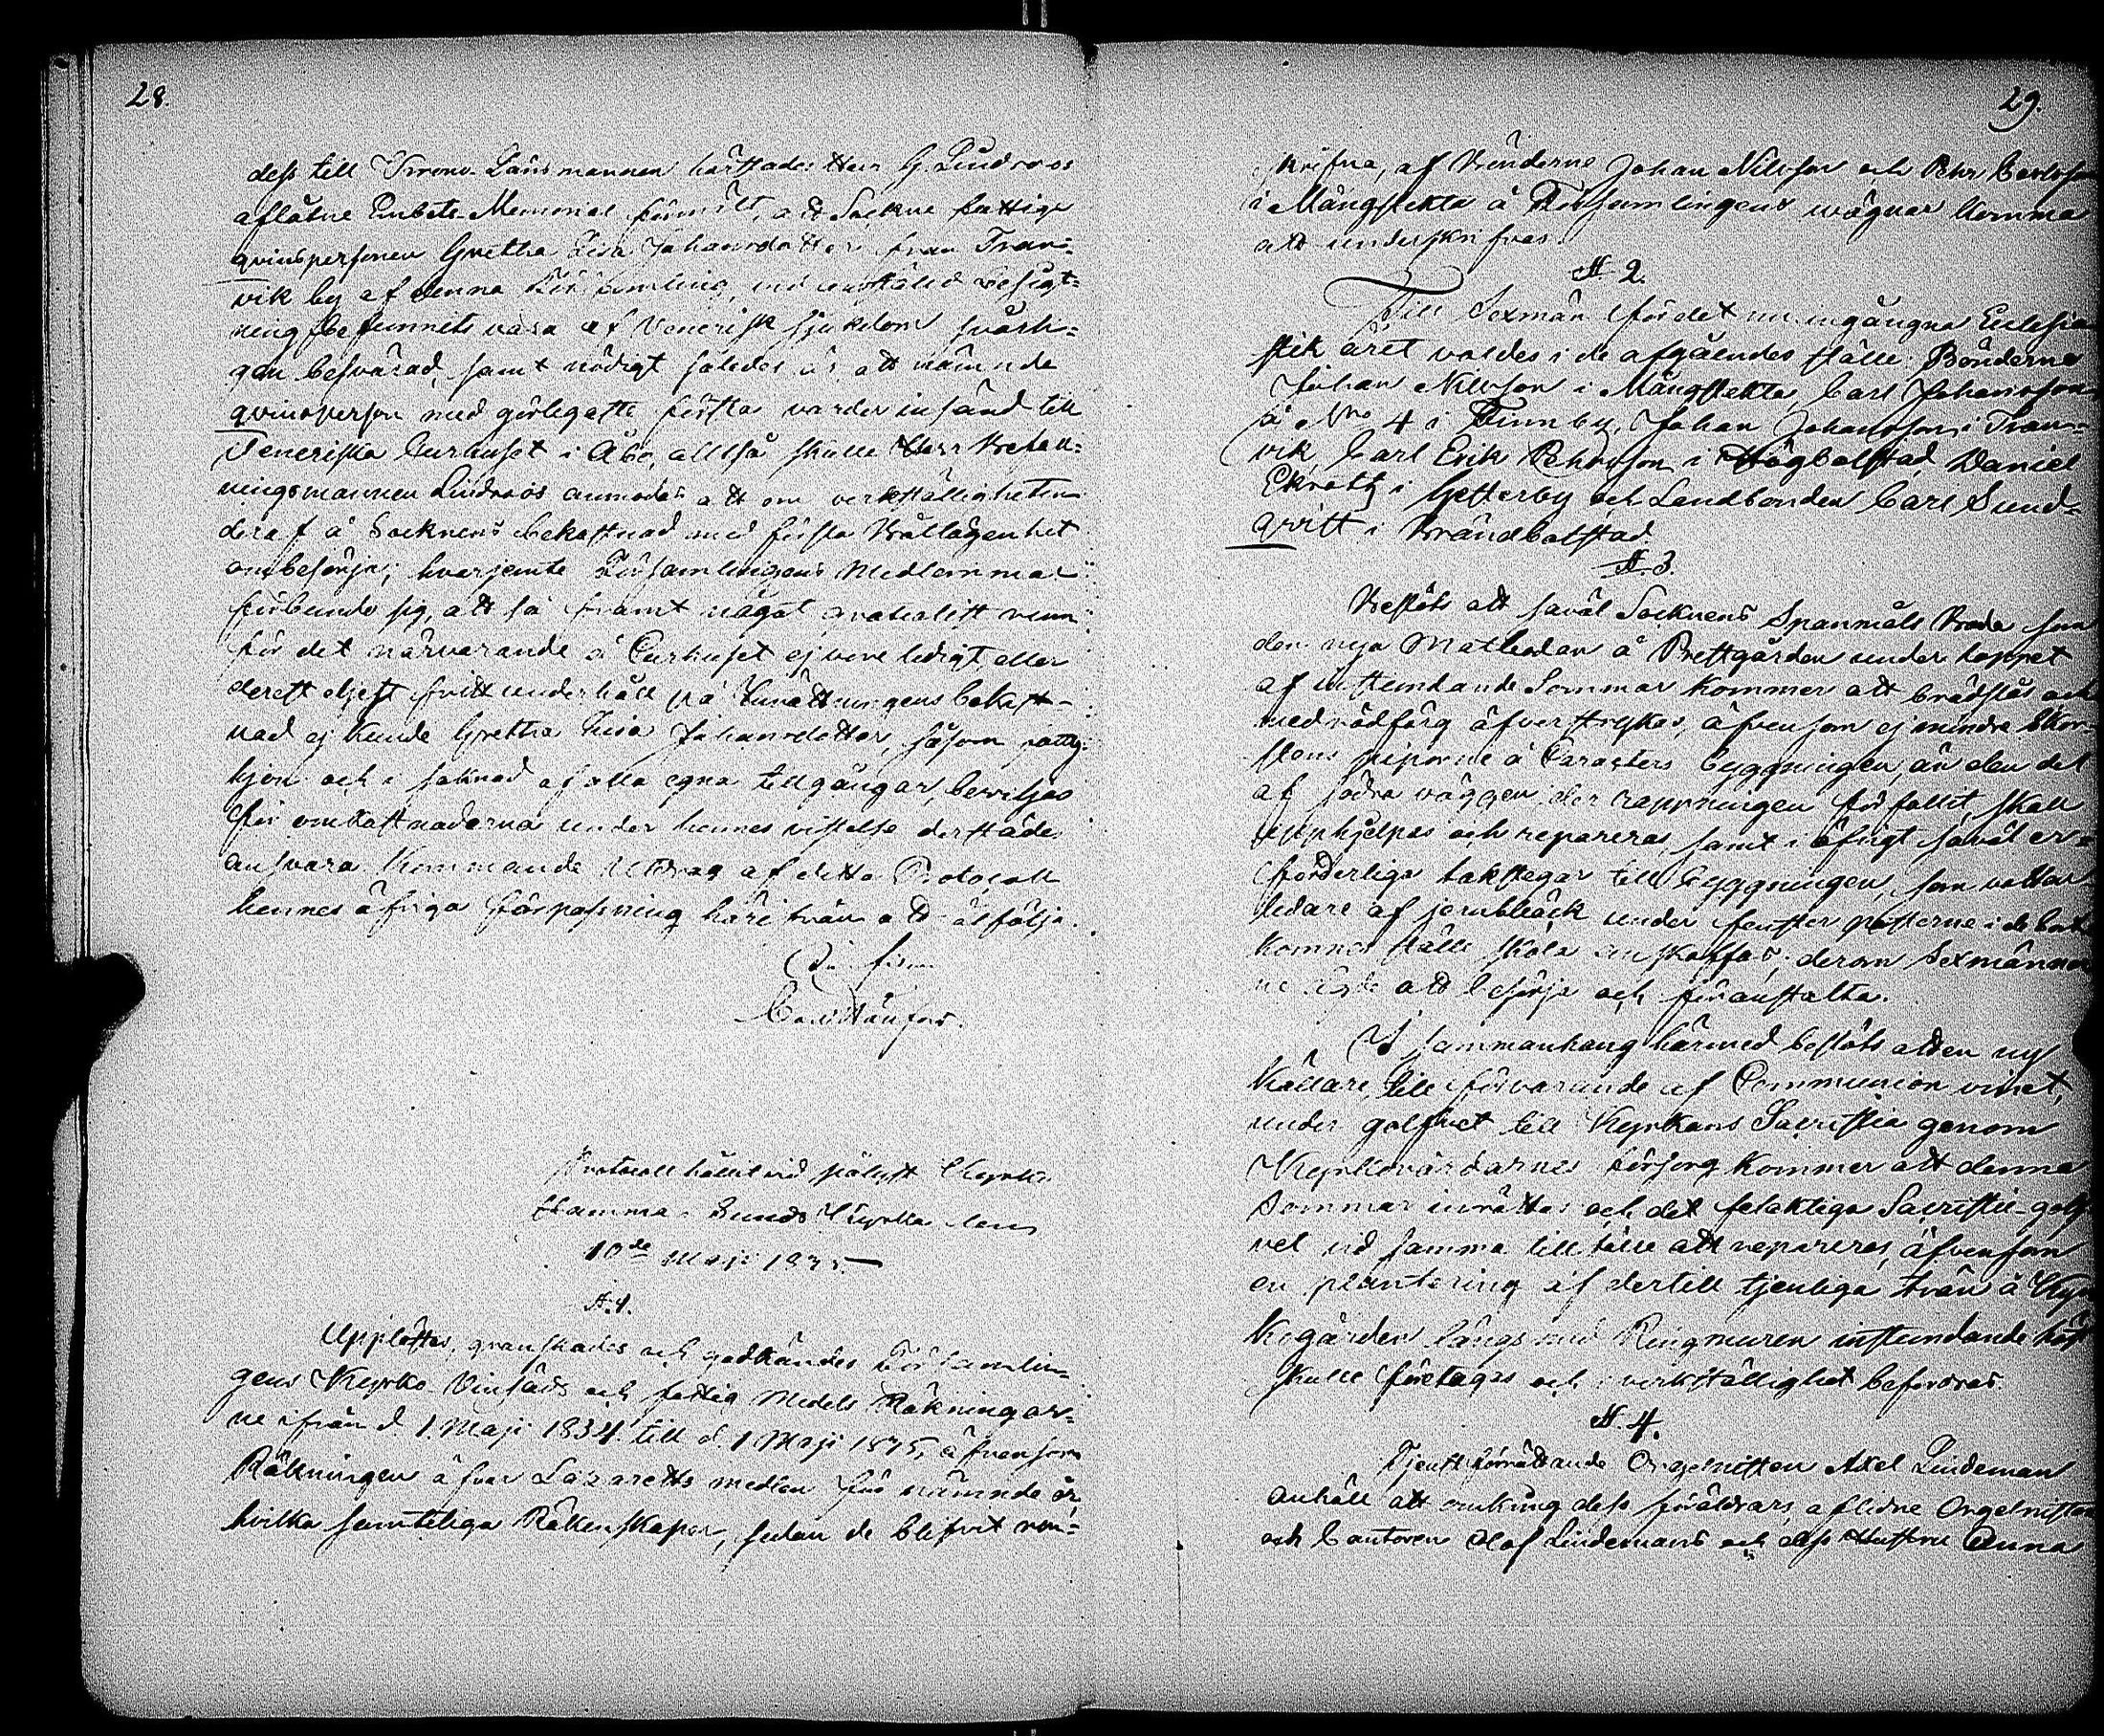 28.
dess till Krono Länsmannen härstädes Herr G. Lindroos
aflåtne Embets Memorial förmält, att Sockne fattige
qvinspersonen Gretha Lisa Johansdotter från Tran=
vik by af denna Församling, vid anstäld besigt=
ning befunnits vara af Venerisk sjukdom svårli=
gen besvärad, samt nödigt således är att nämnde
qvinsperson med görligaste första varder insänd till
Veneriska Curhuset i Åbo, alltså skulle Herr Befall=
ningsmannen Lindroos anmodas att om verkställigheten
deraf å Socknens bekostnad med första Båtlägenhet
ombesörja; hvarjemte Församlingens Medlemmar
förbundo sig, att så framt något gratialist rum
för det närvarande å Curhuset ej vore ledigt eller
derest eljest fritt underhåll på Inrättningens bekost-
nad ej kunde Gretha Lisa Johansdotter, såsom fattig
hjon och i saknad af alla egna tillgångar, beviljas
för omkostnaderna under hennes vistelse derstädes
ansvara. Kommande Utdrag af detta Protocoll
hennes öfriga förpassning härifrån att åtfölja.
Protocoll hållit vid pålyst Kyrko
stämma i Sunds Kyrka den
10de Maji 1835.
§. 1.
Upplästes, granskades och godkändes Församlin=
gens Kyrko- Vinsäds och fattig Medels Räkningar=
ne ifrån d. 1 Maji 1834 till d. 1 Maji 1835, äfvensom
Räkningen öfver Lazaretts medlen för nämnde år,
hvilka samteliga Räkenskaper, sedan de blifvit ren=
29.
skrifne, af Bönderne Johan Nilsson och Pehr Carlsson
i Mångstekta å Församlingens wägnar komma
att underskrifvas.
§. 2.
Till Sexmän för det nu ingångna Ecclesia
stik året valdes i de afgåendes ställe: Bönderne
Johan Nilsson i Mångstekta, Carl Johansson
på No 4 i Finnby, Johan Johansson i Tran=
vik Carl Erik Pehrsson i Högbolstad Daniel
Ekrooth i Gesterby och Landbonden Carl Sund=
qvist i Brändbolstad.
§. 3.
Beslöts att såväl Socknens Spanmåls Boda som
den nya Matbodan å Prestgården under loppet
af instundande Sommar kommer att brädslås och
med rödfärg öfverstrykas, äfvensom ej mindre Skor-
stens piporne å Caracters byggningen, än den del
af södra väggen, der rappningen förfallit, skall
upphjelpas och repareras, samt i öfrigt såväl er=
forderliga takstegar till byggningen, som vatten
ledare af jernbläck under fenster posterne i de bort
komnes ställe skola anskaffas; derom Sexmännen
ne ägde att besörja och föranstalta.
I sammanhang härmed beslöts att en ny
källare, till förvarande af Communion vinet,
under golfvet till Kyrkans Sacristia genom
Kyrkovärdarnes försorg kommer att denna
sommar inrättas och det felaktiga Sacristie-golf
vet vid samma tillfälle att repareras, äfvensom
en plantering af dertill tjenliga trän å Kyr
kogården längs med Ringmuren instundande höst
skulle företagas och i verkställighet befordras.
§. 4.
Tjenstförrättande Orgelnisten Axel Lindeman
anhöll att omkring dess föräldrars, aflidne Orgelnisten
och Cantoren Olof Lindemans och dess Hustrus Anna